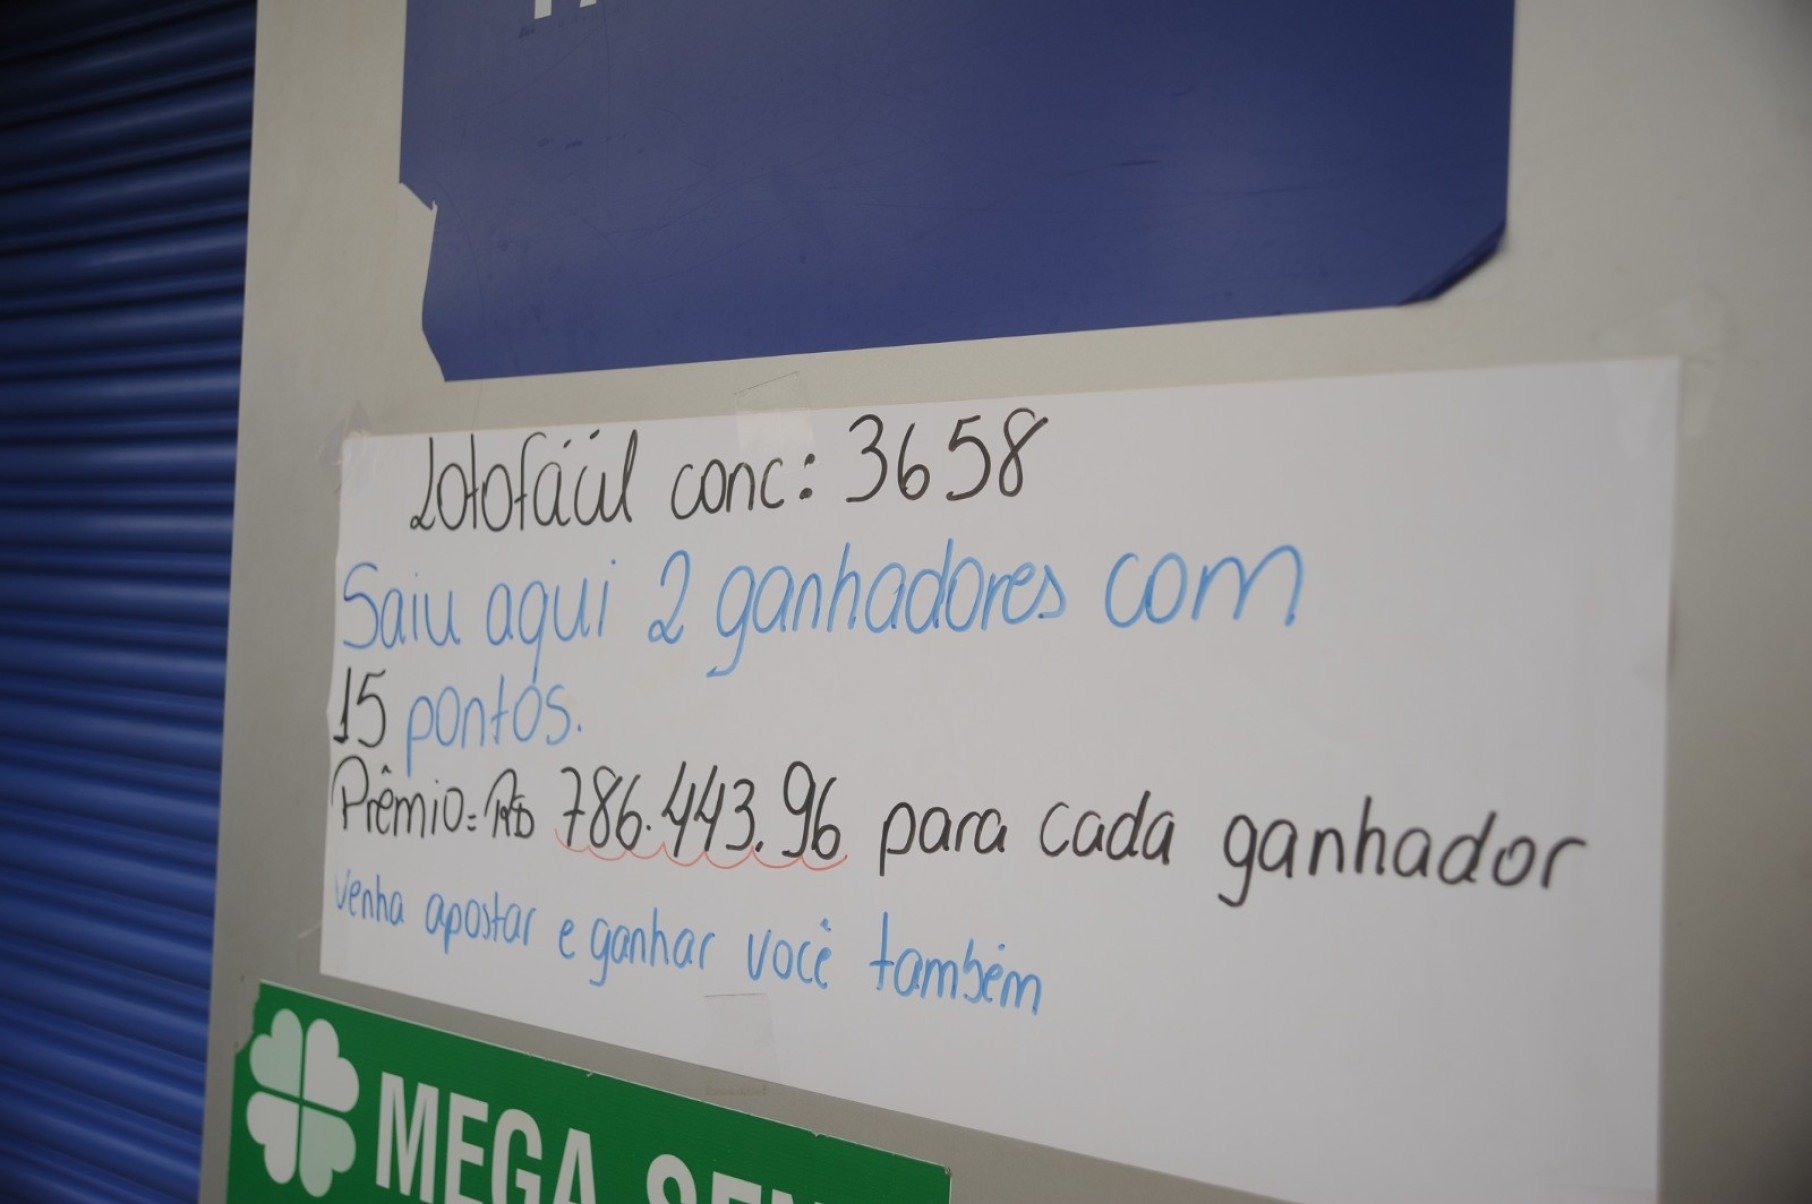 Lotofácil conc: 3658
Saiu aqui 2 ganhadores com
15 pontos.
Prêmio = R$ 786.443.96 para cada ganhador
Venha apostar e ganhar você também
MEGA